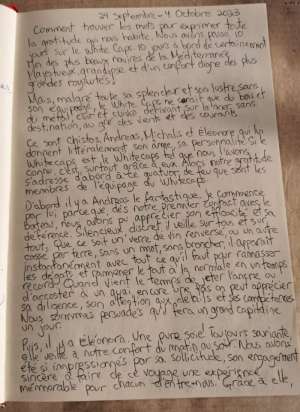 24 septembre - 4 octobre 2023
Comment trouver les mots pour exprimer toute
la gratitude qui nous habite. Nous avons passé 10
jours sur le White Caps. 10 jours à bord de certainement
l'un des plus beaux navires de la Méditerranée.
Majestueux, grandiose et d'un confort digne des plus
grandes royautés!
Mais, malgré toute sa splendeur et son lustre, sans
son équipage, le White Caps ne serait que du bois et
du métal, cuir et cuivre dérivant sur la mer, sans
destination, au gré des vents et des courants.
Ce sont Christos, Andreas, Michalis et Eleonora qui lui
donnent littéralement son âme, sa personnalité. Si le
Whitecaps est le Whitecaps tel que nous l'avons
connu, c'est surtout grâce à eux. Alors notre gratitude
s'adresse d'abord à ce quatuor de feu que sont les
membres de l'équipage du Whitecaps.
D'abord il y a Andreas le fantastique. Je commence
par lui, parce que, dès notre premier contact avec le
bateau, nous avons pu apprécier son efficacité et sa
présence. Silencieux, discret, il veille sur tout et sur
tous. Que ce soit un verre de vin renversé, ou un autre
cassé par terre, sans un mot, sans broncher, il apparaît
instantanément avec tout ce qu'il faut pour ramasser
les dégâts et ramener le tout à la normale en un temps
record. Quand vient le temps de jeter l'ancre ou
d'accoster à un quai, encore une fois on peut apprécier
sa diligence, son attention aux détails et ses compétences.
Nous sommes persuadés qu'il fera un grand capitaine
un jour.
Puis, il y a Eleonora. Une pure soie. Toujours souriante,
elle veille à notre confort du matin au soir. Nous avons
été si impressionnés par sa sollicitude, son engagement
sincère à faire de ce voyage une expérience
mémorable pour chacun d'entre nous. Grâce à elle,